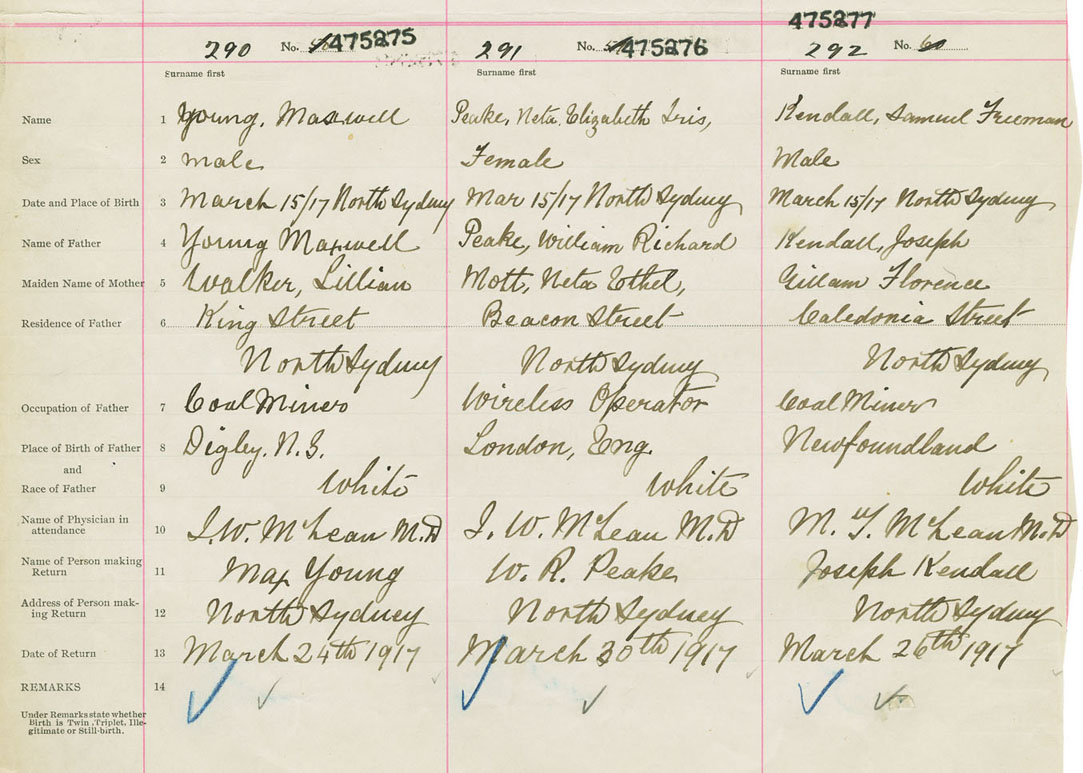 475877
290 No. 475875 291 No. 475876 292 No. 60
Surname first Surname first Surname first
Name 1 Young, Maxwell Peake, Neta Elizabeth Iris, Kendall, Samuel Freeman
Sex 2 male Female Male
Date and Place of Birth 3 March 15/17 North Sydney Mar 15/17 North Sydney March 15/17 North Sydney
Name of Father 4 Young Maxwell Peake, William Richard Kendall, Joseph
Maiden Name of Mother 5 Walker, Lillian Mott, Neta Ethel, Gillam Florence
Residence of Father 6 King Street Beacon Street Caledonia Street
North Sydney North Sydney North Sydney
Occupation of Father 7 Coal Miner Wireless Operator Coal Miner
Place of Birth of Father 8 Digby. N.S. London, Eng. Newfoundland
and
Race of Father 9 White White White
Name of Physician in
attendance 10 I. W. McLean M.D I. W. McLean M.D M. T. McLean M.D
Name of Person making
Return 11 Max Young W. R. Peake Joseph Kendall
Address of Person mak-
ing Return 12 North Sydney North Sydney North Sydney
Date of Return 13 March 24th 1917 March 30th 1917 March 26th 1917
REMARKS 14
Under Remarks state whether
Birth is Twin, Triplet, Ille-
gitimate or Still-birth.